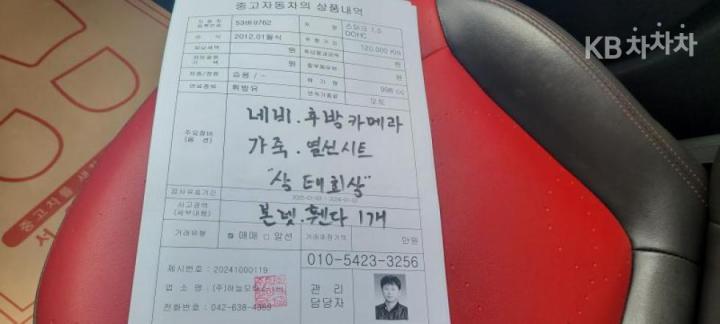 중고자동차의 상품내역
KB차차차
자동차등록번호 53버9762 차명 스파크 1.0 DOHC
연식 2012.01월식 주행거리 120,000 Km
원
원
차종/정원 승용 / - 배기량 998 cc
연료종류 휘발유 변속기종류 오토
주요장비(옵션)
네비. 후방카메라
가죽. 열선시트
"상태최상"
검사유효기간
사고경력(세부내용) 본넷. 휀다 1개
거래유형 매매 알선 만원
010-5423-3256
제시번호 : 20241000119
업 소 명 : (주)하늘모
전화번호 : 042-638-4989
관리담당자
중고차를 새